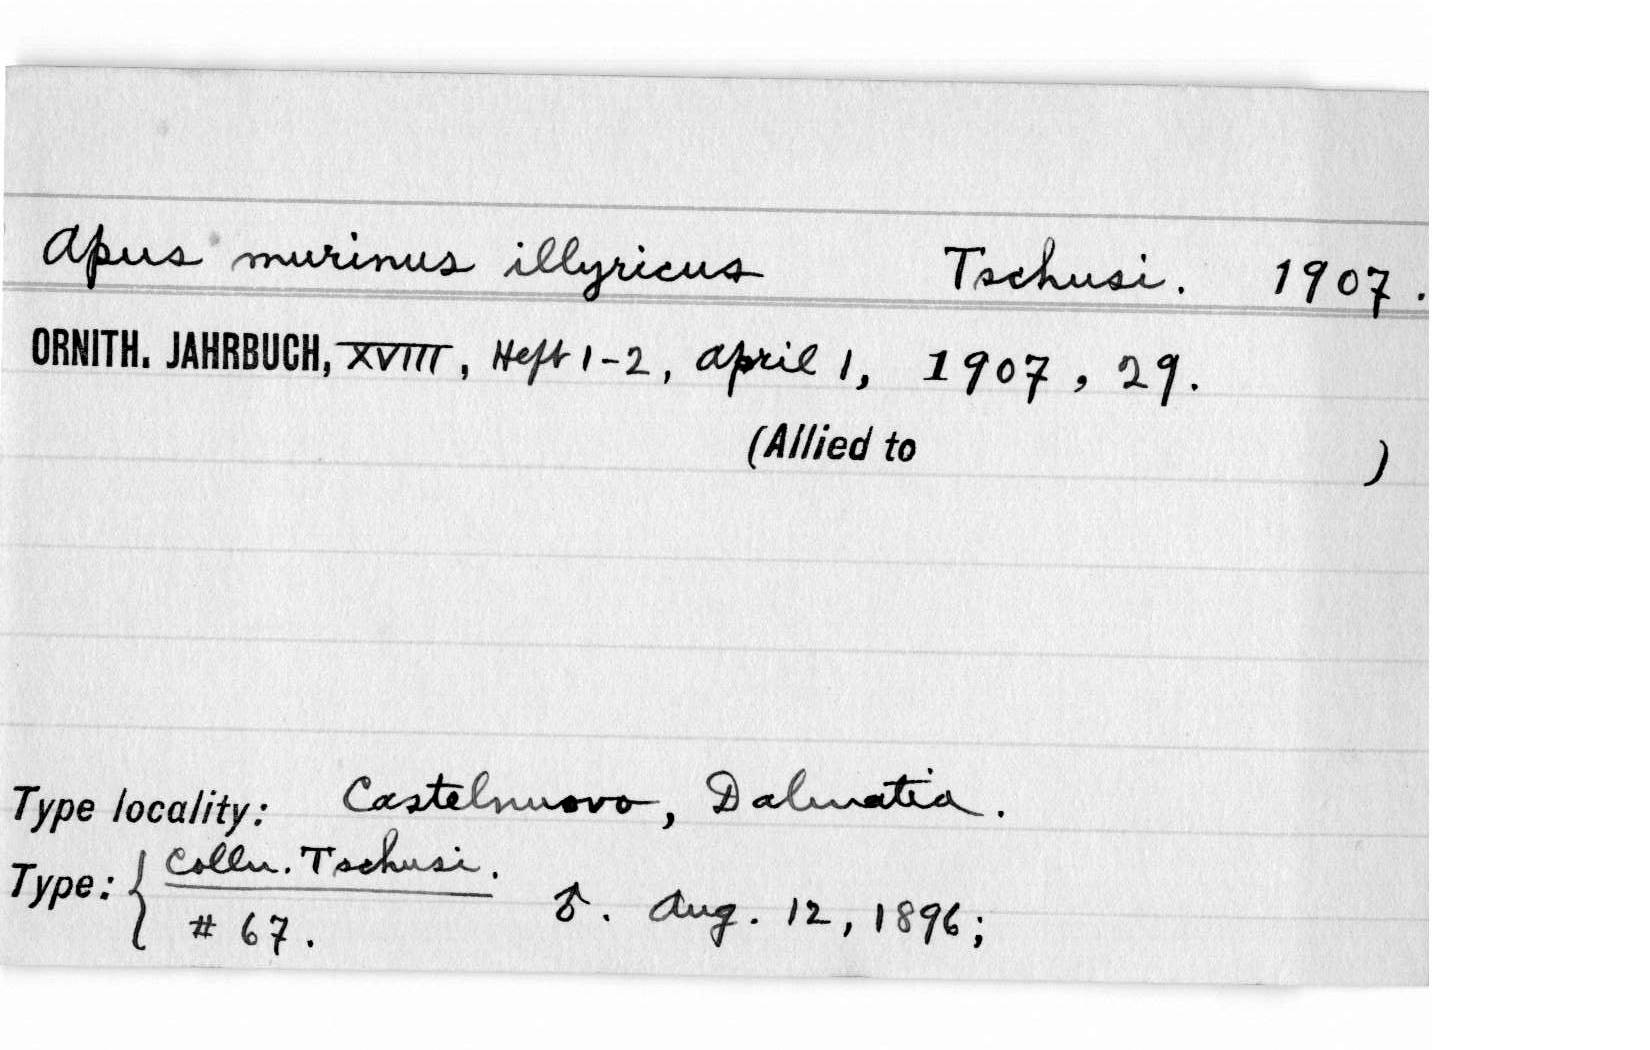 Apus murinus illyricus Tschusi. 1907.
ORNITH. JAHRBUCH, XVIII, Heft 1-2, April 1, 1907, 29.
(Allied to )
Type locality: Castelnuovo, Dalmatia.
Type: { Colln. Tschusi.
# 67. ♂. Aug. 12, 1896;